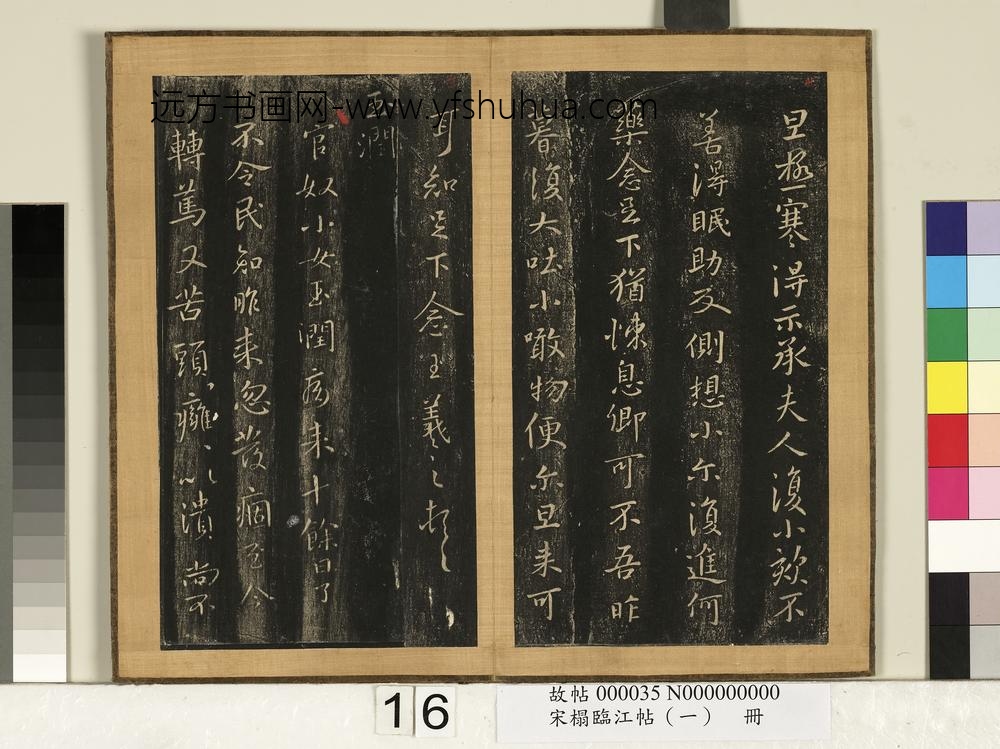 旦極寒得示承夫人復小欬不
善得眠助反側想小尔復進何
藥念足下猶悚息卿可不吾昨
暮復大吐小噉物便尔旦来可
耳知足下念王羲之頓
玉潤
官奴小女玉潤病来十餘日了
不令民知昨来忽發痼至今
轉篤又苦頭癰以潰尚不
远方书画网-www.yfshuhua.com
16
故帖 000035 N000000000
宋榻臨江帖（一） 冊